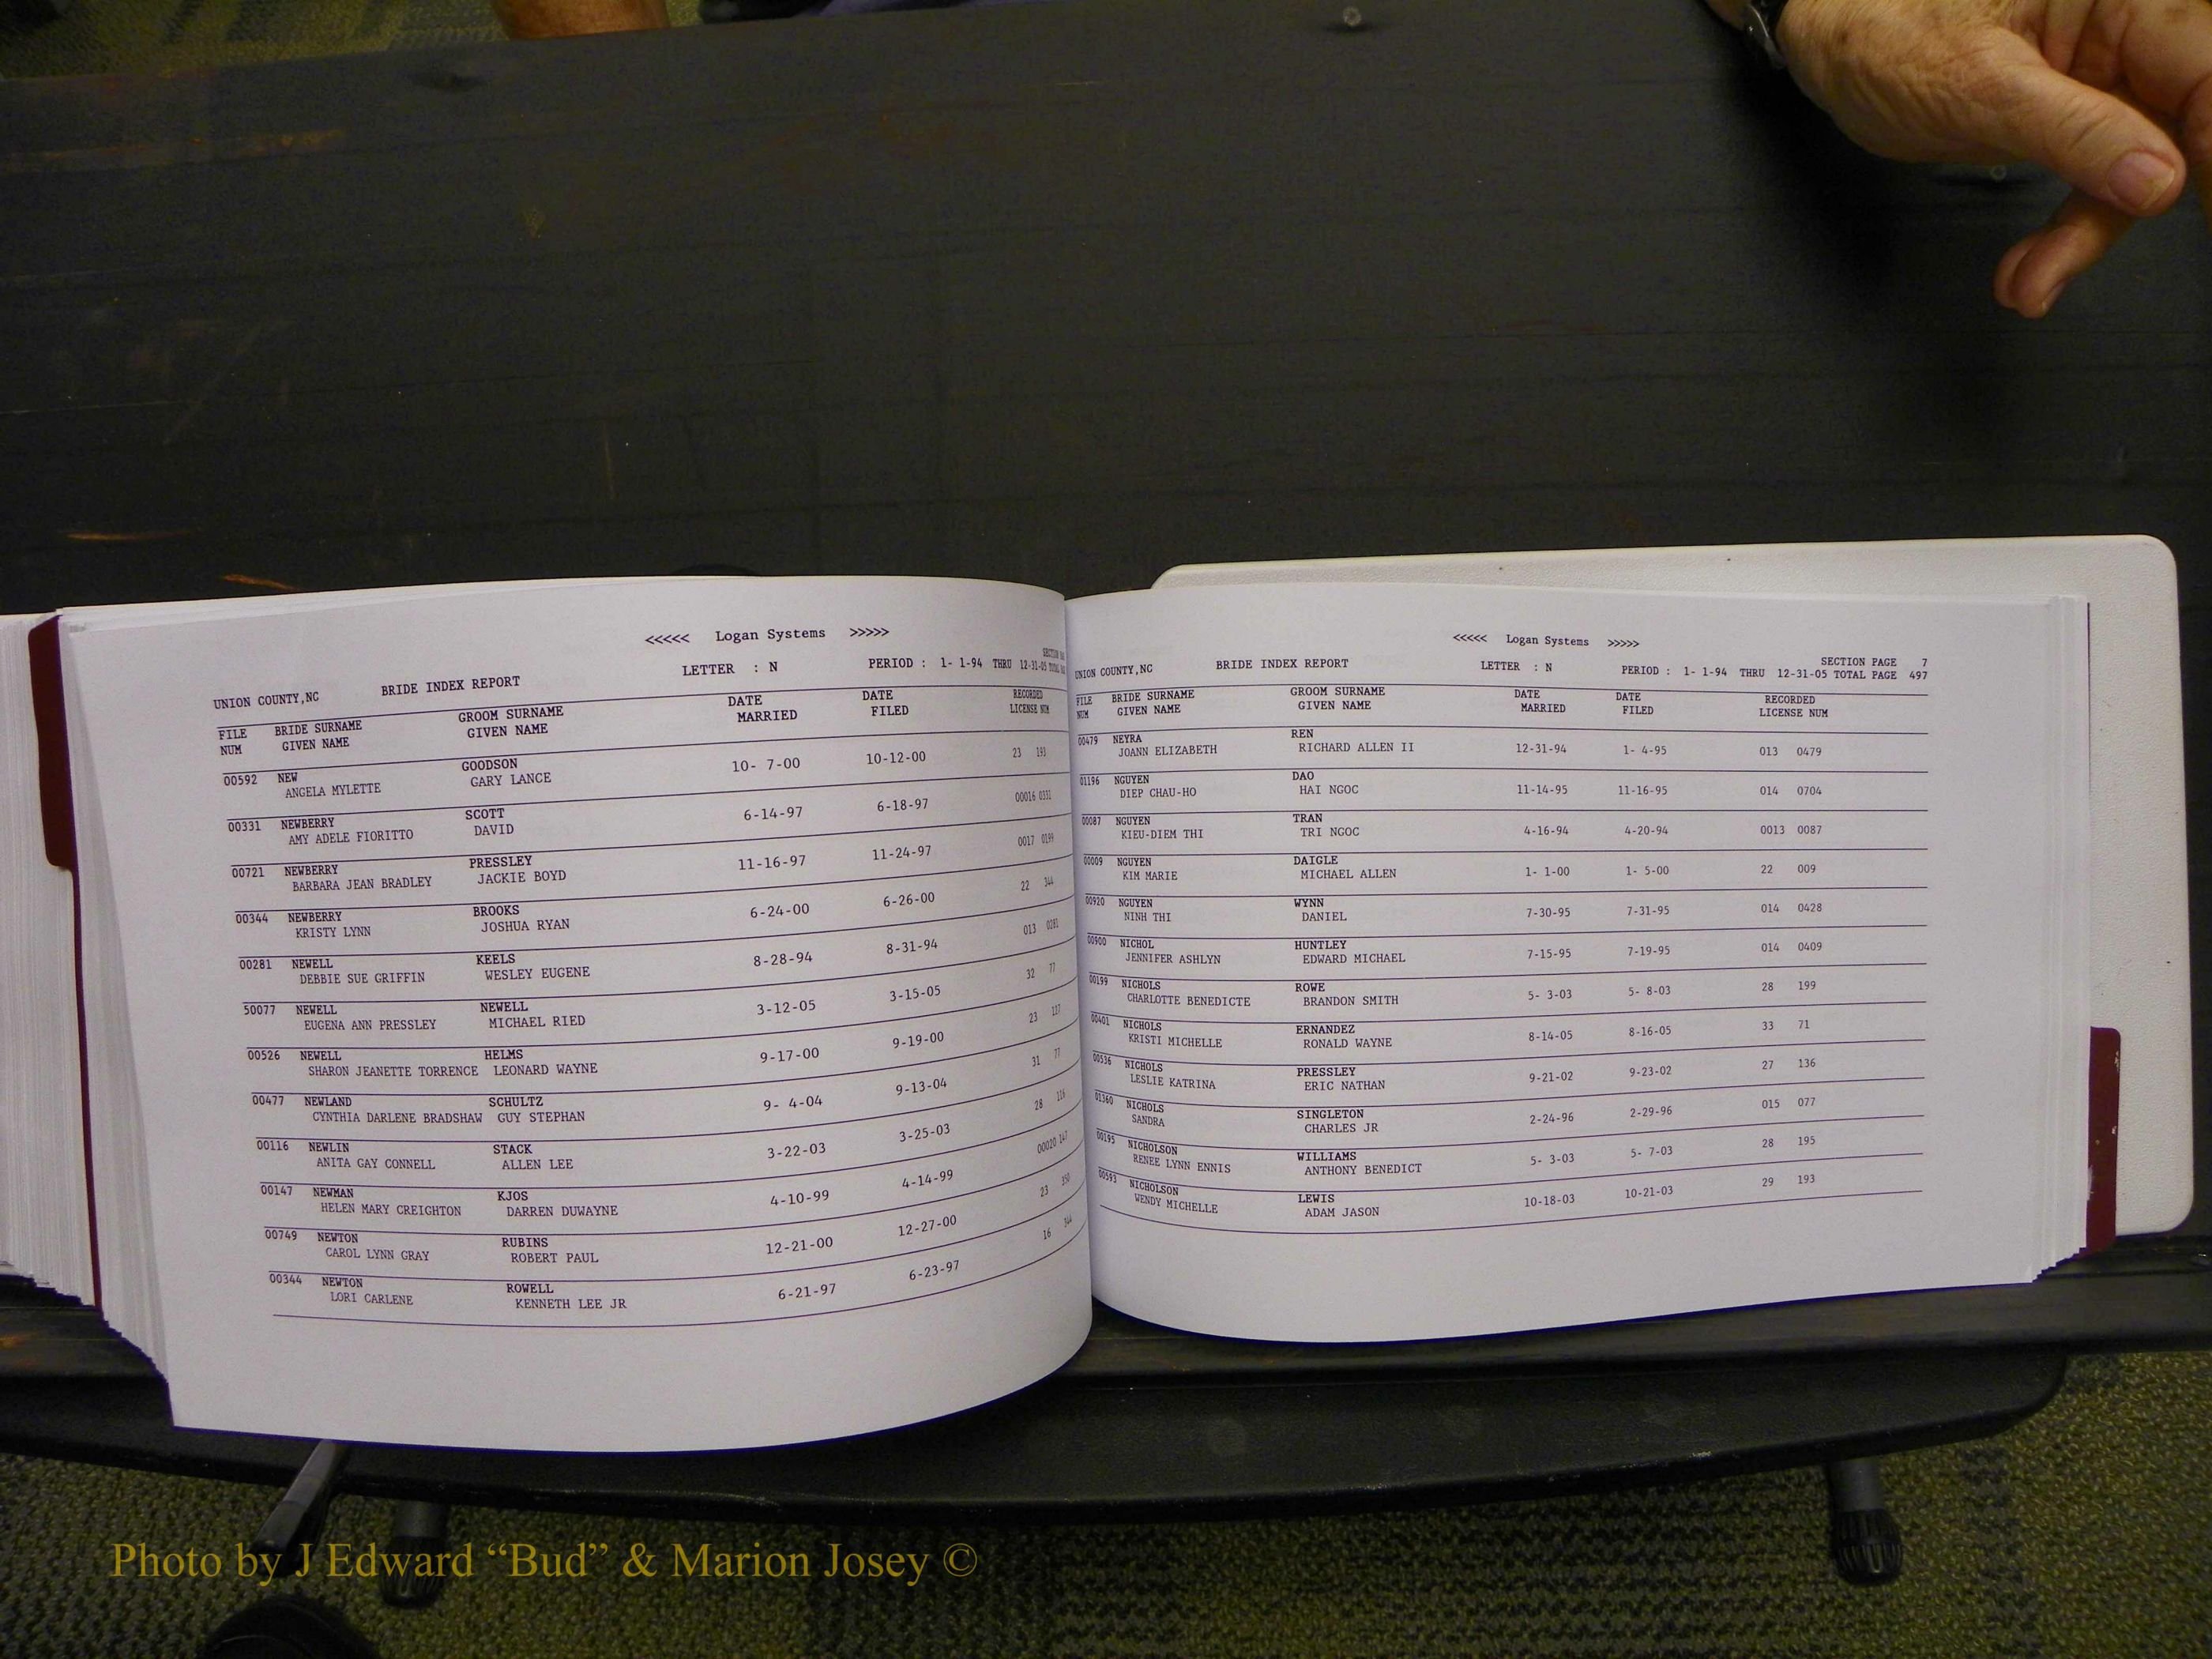 <<<<< Logan Systems >>>>>
UNION COUNTY,NC BRIDE INDEX REPORT LETTER : N PERIOD : 1- 1-94 THRU 12-31-05 TOTAL
FILE BRIDE SURNAME GROOM SURNAME DATE DATE RECORDED
NUM GIVEN NAME GIVEN NAME MARRIED FILED LICENSE NUM
00592 NEW GOODSON 10- 7-00 10-12-00 23 193
ANGELA MYLETTE GARY LANCE
00331 NEWBERRY SCOTT 6-14-97 6-18-97 00016 0331
AMY ADELE FIORITTO DAVID
00721 NEWBERRY PRESSLEY 11-16-97 11-24-97 0017 0199
BARBARA JEAN BRADLEY JACKIE BOYD
00344 NEWBERRY BROOKS 6-24-00 6-26-00 22 344
KRISTY LYNN JOSHUA RYAN
00281 NEWELL KEELS 8-28-94 8-31-94 013 0281
DEBBIE SUE GRIFFIN WESLEY EUGENE
50077 NEWELL NEWELL 3-12-05 3-15-05 32 77
EUGENA ANN PRESSLEY MICHAEL RIED
00526 NEWELL HELMS 9-17-00 9-19-00 23
SHARON JEANETTE TORRENCE LEONARD WAYNE
00477 NEWLAND SCHULTZ 9- 4-04 9-13-04 31 77
CYNTHIA DARLENE BRADSHAW GUY STEPHAN
00116 NEWLIN STACK 3-22-03 3-25-03 28 116
ANITA GAY CONNELL ALLEN LEE
00147 NEWMAN KJOS 4-10-99 4-14-99 00020 147
HELEN MARY CREIGHTON DARREN DUWAYNE
00749 NEWTON RUBINS 12-21-00 12-27-00 23 350
CAROL LYNN GRAY ROBERT PAUL
00344 NEWTON ROWELL 6-21-97 6-23-97 16 344
LORI CARLENE KENNETH LEE JR
<<<<< Logan Systems >>>>>
SECTION PAGE 7
UNION COUNTY,NC BRIDE INDEX REPORT LETTER : N PERIOD : 1- 1-94 THRU 12-31-05 TOTAL PAGE 497
FILE BRIDE SURNAME GROOM SURNAME DATE DATE RECORDED
NUM GIVEN NAME GIVEN NAME MARRIED FILED LICENSE NUM
00479 NEYRA REN 12-31-94 1- 4-95 013 0479
JOANN ELIZABETH RICHARD ALLEN II
01196 NGUYEN DAO 11-14-95 11-16-95 014 0704
DIEP CHAU-HO HAI NGOC
00087 NGUYEN TRAN 4-16-94 4-20-94 0013 0087
KIEU-DIEM THI TRI NGOC
00009 NGUYEN DAIGLE 1- 1-00 1- 5-00 22 009
KIM MARIE MICHAEL ALLEN
00920 NGUYEN WYNN 7-30-95 7-31-95 014 0428
NINH THI DANIEL
00900 NICHOL HUNTLEY 7-15-95 7-19-95 014 0409
JENNIFER ASHLYN EDWARD MICHAEL
00199 NICHOLS ROWE 5- 3-03 5- 8-03 28 199
CHARLOTTE BENEDICTE BRANDON SMITH
00401 NICHOLS ERNANDEZ 8-14-05 8-16-05 33 71
KRISTI MICHELLE RONALD WAYNE
00536 NICHOLS PRESSLEY 9-21-02 9-23-02 27 136
LESLIE KATRINA ERIC NATHAN
01360 NICHOLS SINGLETON 2-24-96 2-29-96 015 077
SANDRA CHARLES JR
00195 NICHOLSON WILLIAMS 5- 3-03 5- 7-03 28 195
RENEE LYNN ENNIS ANTHONY BENEDICT
00593 NICHOLSON LEWIS 10-18-03 10-21-03 29 193
WENDY MICHELLE ADAM JASON
Photo by J Edward “Bud” & Marion Josey ©